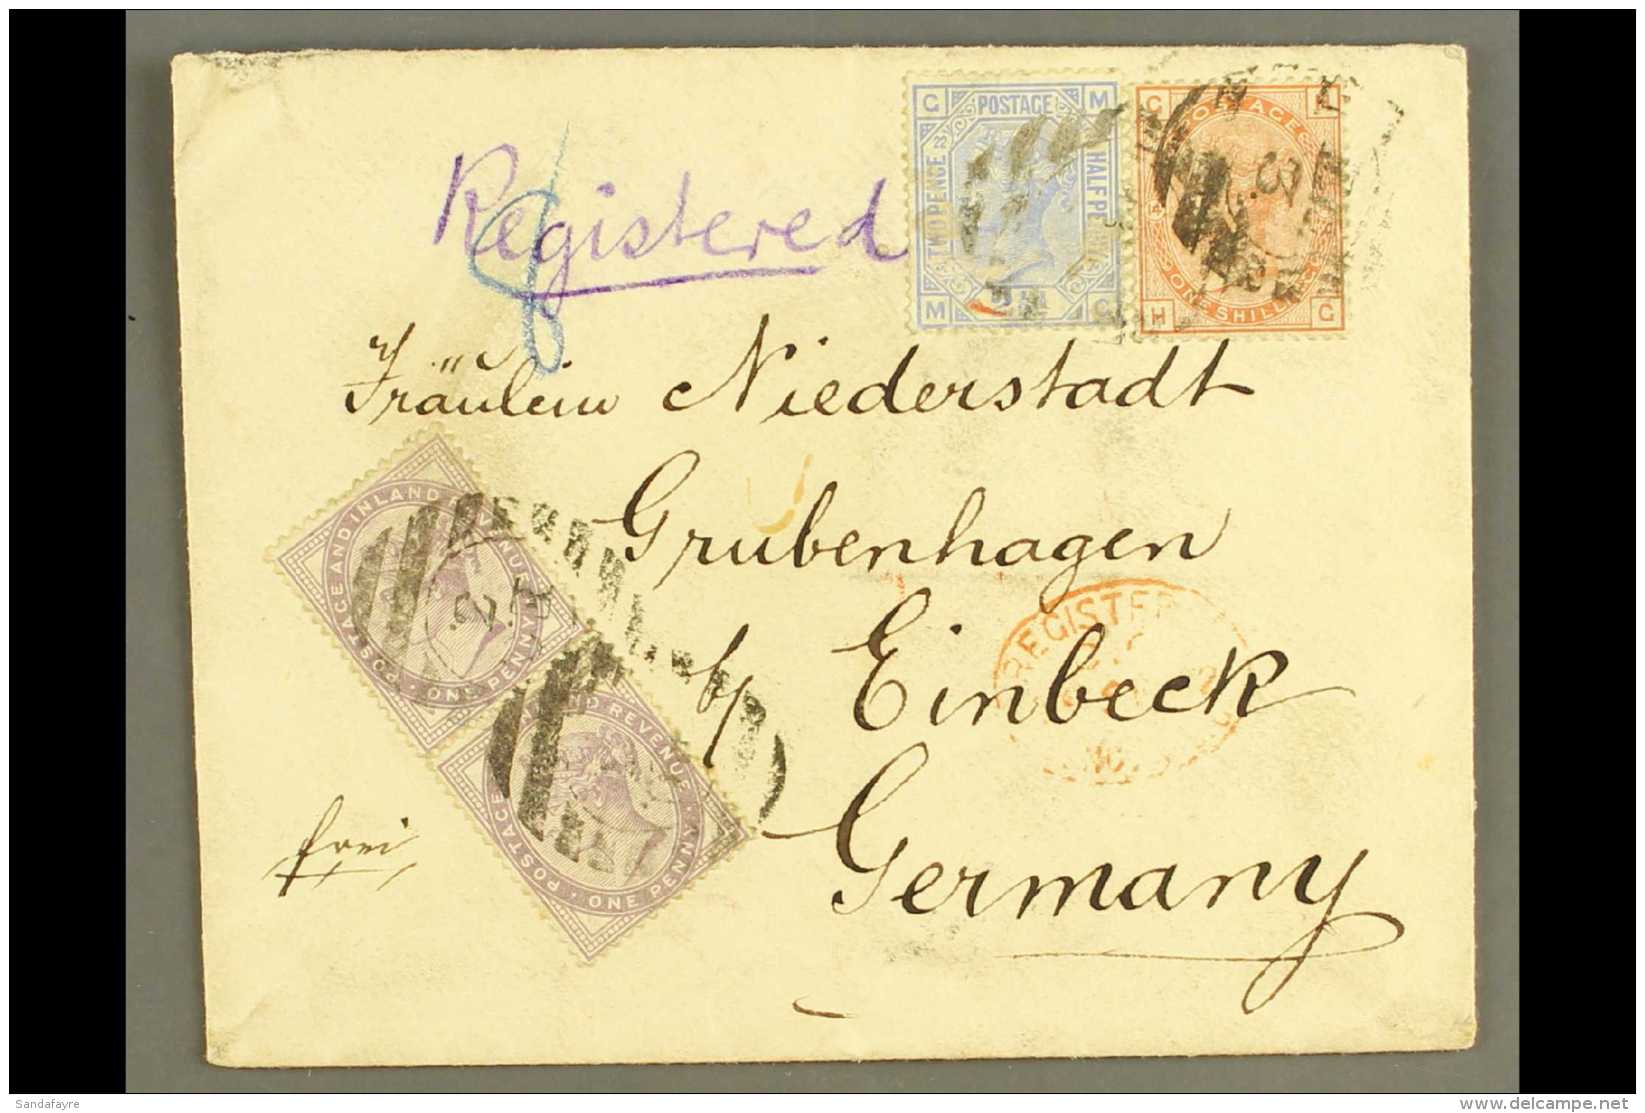 Registered
G POSTAGE M
TWOPENCE HALF PE
22
M G
G POSTAGE H
ONE SHILLING
H G
Fräulein Niederstadt
Grubenhagen
b/ Einbeck
Germany
frei
POSTAGE AND INLAND REVENUE
ONE PENNY
POSTAGE AND REVENUE
ONE PENNY
REGISTER
Sandafayre
delcampe.net